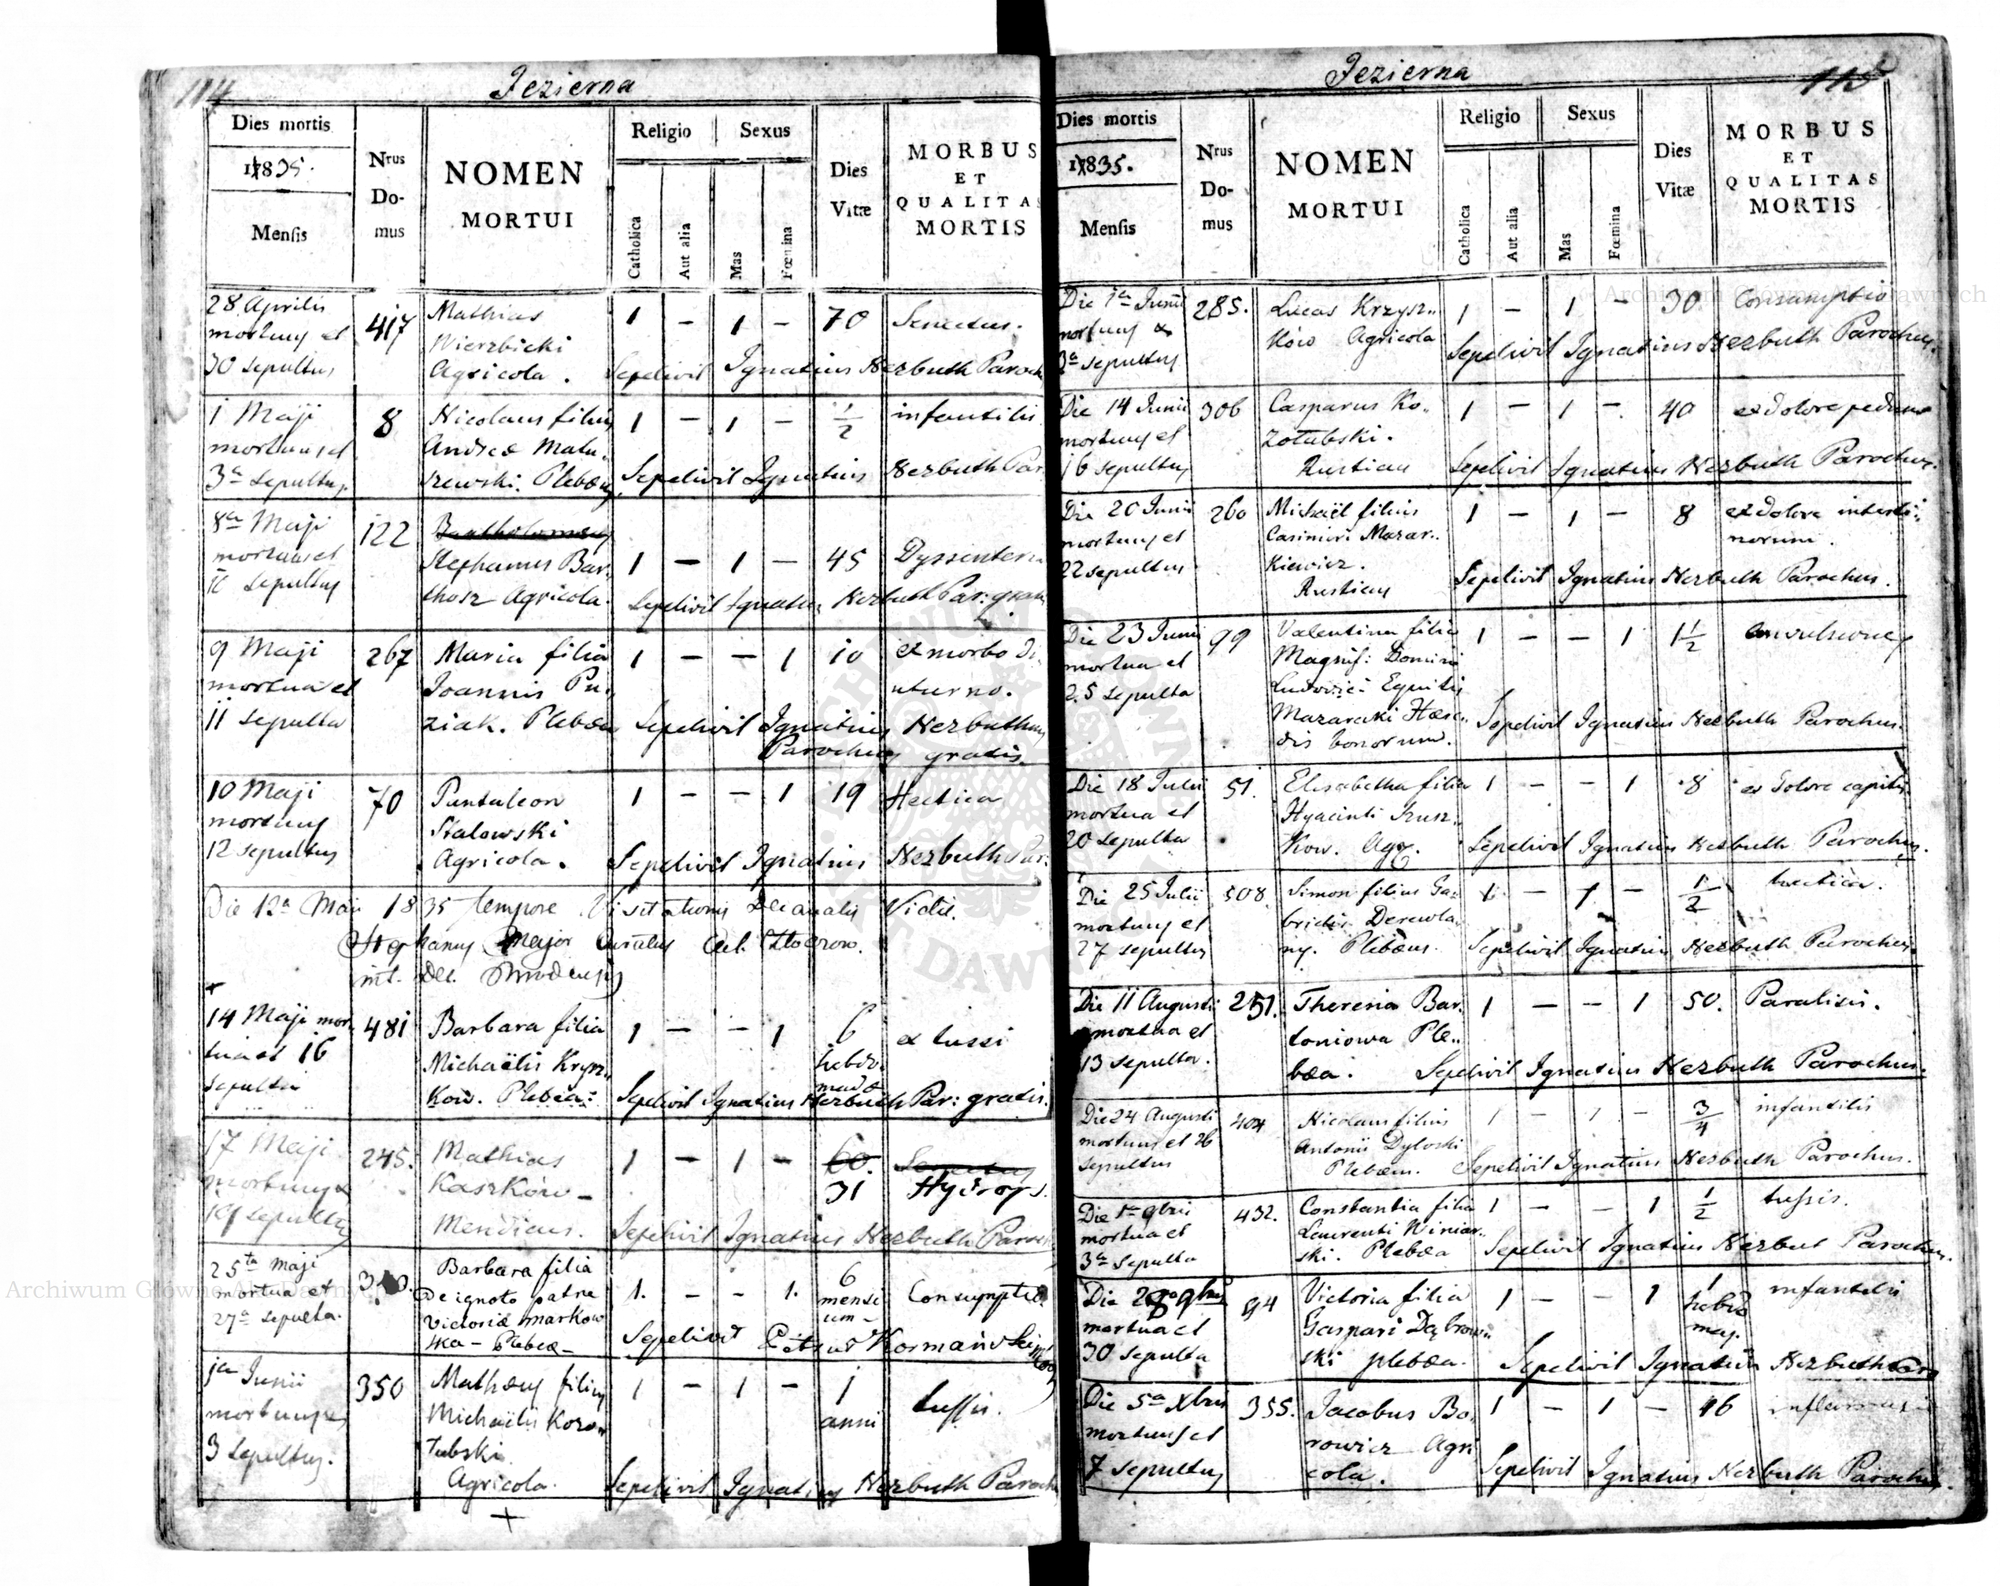 114
Jezierna
Dies mortis
1835.
Mensis
Nrus
Do-
mus
NOMEN
MORTUI
Religio
Sexus
Catholica
Aut alia
Mas
Fœmina
Dies
Vitæ
MORBUS
ET
QUALITAS
MORTIS
28 Aprilis
mortuus et
30 sepultus
417
Mathias
Wierzbicki
Agricola.
1 — 1 — 70
Senectus.
Sepelivit Ignatius Herbuth Paroch
1 Maji
mortuus et
3a sepultus.
8
Nicolaus filius
Andreæ Matu-
szewski. Plebæus
1 — 1 — 1/2
infantilis
Sepelivit Ignatius Herbuth Par.
8va Maji
mortuus et
10 sepultus
122
Stephanus Bar-
thosz Agricola.
1 — 1 — 45
Dyssenteria
Sepelivit Ignatius Herbuth Par: gratis
9 Maji
mortua et
11 sepulta
267
Maria filia
Joannis Pu-
ziak. Plebæus
1 — — 1 10
ex morbo di-
uturno.
Sepelivit Ignatius Herbuth
Parochus gratis.
10 Maji
mortuus
12 sepultus
70
Pantaleon
Stalowski
Agricola.
1 — — 1 19
Hectica
Sepelivit Ignatius Herbuth Par.
Die 12a Maii 1835 tempore Visitationis Decanalis Vidit.
Stephanus Major
14 Maji mor-
tua et 16
sepulta
481
Barbara filia
Michaëlis Krysz-
ków. Plebæa.
1 — — 1 6
hebdo-
madæ
ex tussi
Sepelivit Ignatius Herbuth Par: gratis.
17 Maji
mortuus &
19 sepultus
245.
Mathias
Kaszków —
Mendicus.
1 — 1 — 60.
31
Senectus
Hydrops.
Sepelivit Ignatius Herbuth Paroch
25ta Maji
mortua et
27a sepulta.
Barbara filia
De ignoto patre
Victoriæ Markow
ska — Plebeæ —
1. — — 1. 6
mensi
um —
Consumptio
Sepelivit Petrus Kormański
1a Junii
mortuus et
3 sepultus.
350
Mathæus filius
Michaëlis Kozo-
łubski.
Agricola.
1 — 1 — 1
anni
tussis.
Sepelivit Ignatius Herbuth Paroch
115
Jezierna
Dies mortis
1835.
Mensis
Nrus
Do-
mus
NOMEN
MORTUI
Religio
Sexus
Catholica
Aut alia
Mas
Fœmina
Dies
Vitæ
MORBUS
ET
QUALITAS
MORTIS
Die 1a Junii
mortuus &
3a sepultus
285.
Lucas Krzysz-
ków Agricola
1 — 1 — 30
Consumptio
Sepelivit Ignatius Herbuth Parochus.
Die 14 Junii
mortuus et
16 sepultus
306
Casparus Ko-
zołubski.
Rusticus
1 — 1 — 40
ex dolore pedum
Sepelivit Ignatius Herbuth Parochus.
Die 20 Junii
mortuus et
22 sepultus
260
Michaël filius
Casimiri Mazar-
kiewicz.
Rusticus
1 — 1 — 8
ex dolore intesti-
norum.
Sepelivit Ignatius Herbuth Parochus.
Die 23 Junii
mortua et
25 sepulta
99
Valentina filia
Magnif: Domini
Ludovici Equitis
Mazaraki Hære-
dis bonorum.
1 — — 1 1 1/2
convulsiones
Sepelivit Ignatius Herbuth Parochus.
Die 18 Julii
mortua et
20 sepulta
51.
Elisabetha filia
Hyacinti Irusz-
kow. Agr.
1 — — 1 8
ex dolore capitis.
Sepelivit Ignatius Herbuth Parochus.
Die 25 Julii
mortuus et
27 sepultus
508.
Simon filius Ga-
brielis Derewla-
ny. Plebæus.
1 — 1 — 1/2
hectica.
Sepelivit Ignatius Herbuth Parochus.
Die 11 Augusti
mortua et
13 sepulta.
251.
Theresia Bar-
toniowa Ple-
bæa.
1 — — 1 50.
Paralisis.
Sepelivit Ignatius Herbuth Parochus.
Die 24 Augusti
mortuus et 26
sepultus
404
Nicolaus filius
Antonii Dyloski
Plebæus.
1 — 1 — 3/4
infantilis
Sepelivit Ignatius Herbuth Parochus.
Die 1a 9bris
mortua et
3a sepulta
432.
Constantia filia
Laurenti Winiar-
ski. Plebæa
1 — — 1 1/2
tussis.
Sepelivit Ignatius Herbut Parochus.
Die 28 9bris
mortua et
30 sepulta
94
Victoria filia
Gaspari Dąbrow-
ski plebæa.
1 — — 1 1
infantilis
Sepelivit Ignatius Herbuth Par
Die 5a Xbris
mortuus et
7 sepultus
355.
Jacobus Bo-
rowicz Agri
cola.
1 — 1 — 46
inflammatio
Sepelivit Ignatius Herbuth Parochus.
Archiwum Główne Akt Dawnych